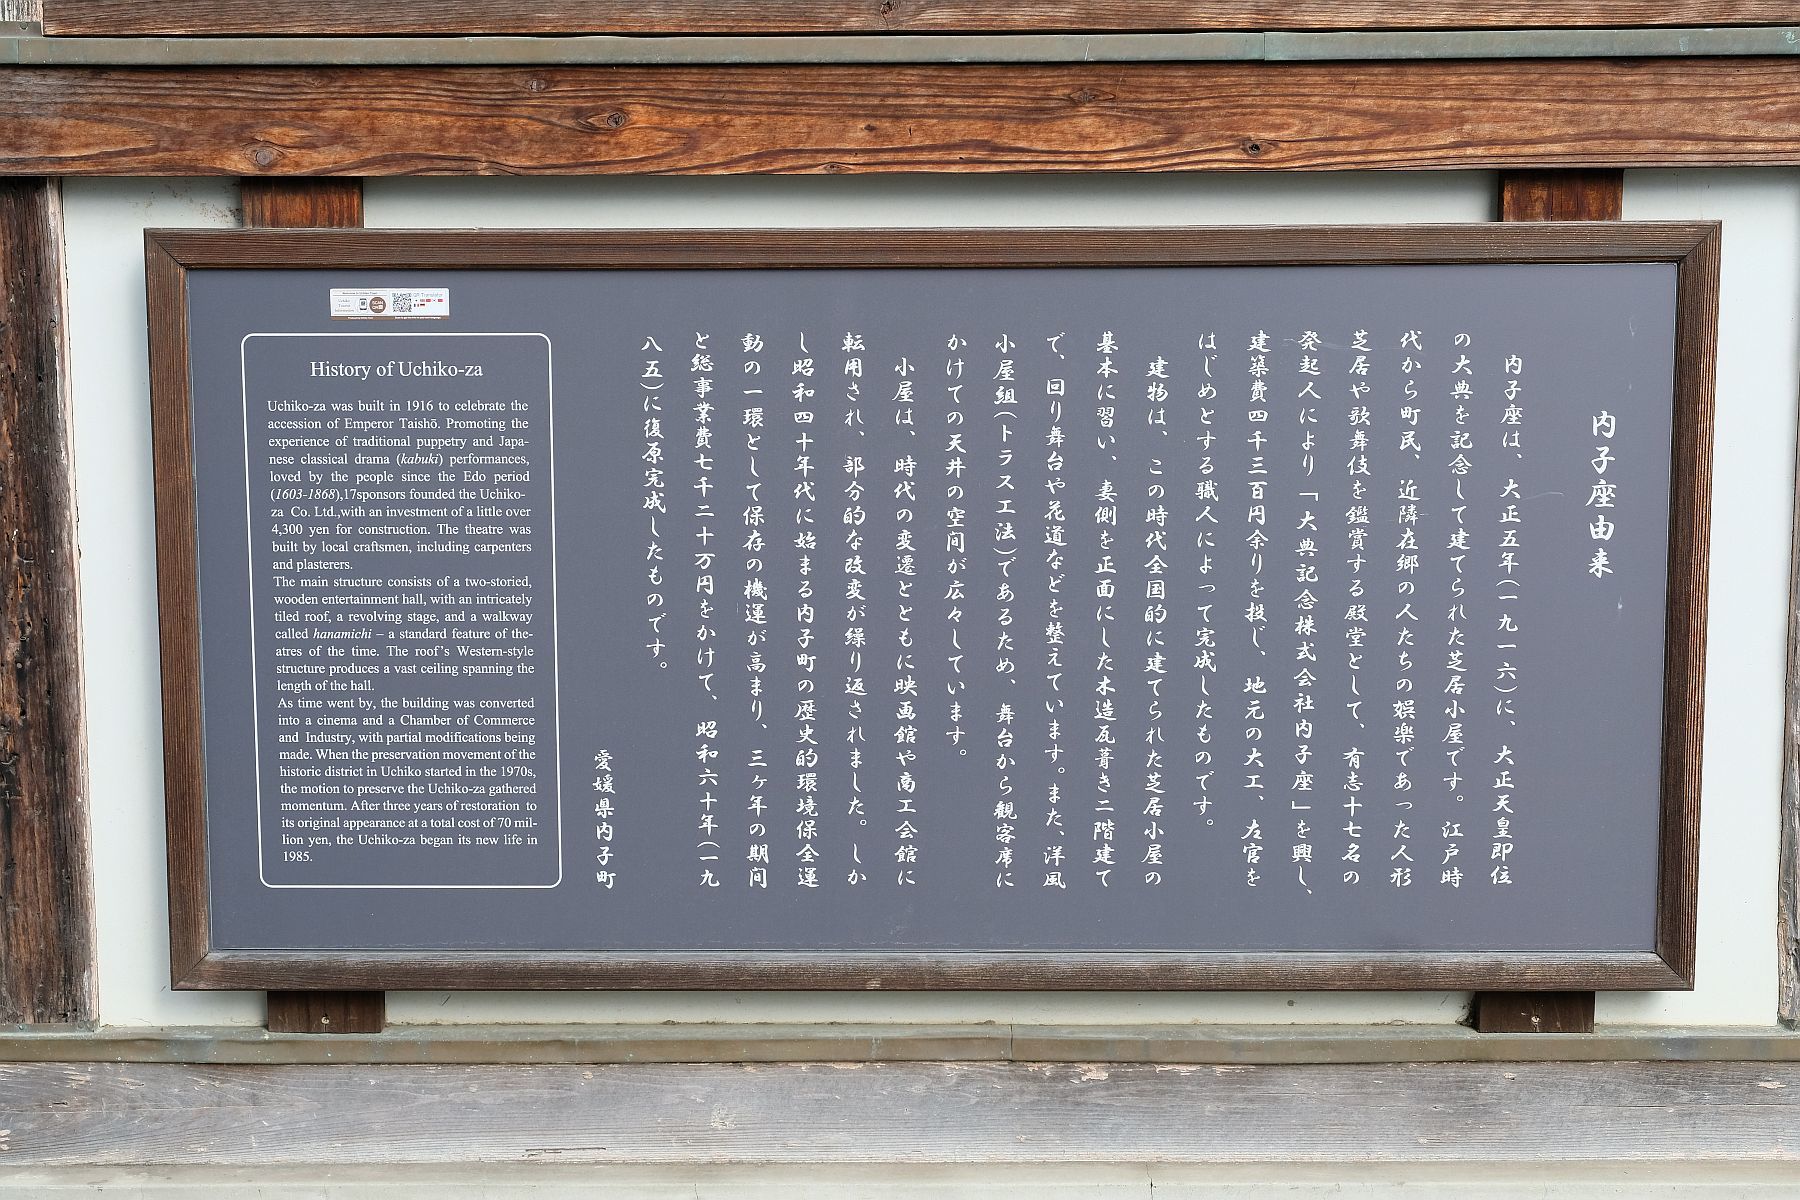 内子座由来
内子座は、大正五年(一九一六)に、大正天皇即位
の大典を記念して建てられた芝居小屋です。江戸時
代から町民、近隣在郷の人たちの娯楽であった人形
芝居や歌舞伎を鑑賞する殿堂として、有志十七名の
発起人により「大典記念株式会社内子座」を興し、
建築費四千三百円余りを投じ、地元の大工、左官を
はじめとする職人によって完成したものです。
建物は、この時代全国的に建てられた芝居小屋の
基本に習い、妻側を正面にした木造瓦葺き二階建て
で、回り舞台や花道などを整えています。また、洋風
小屋組(トラス工法)であるため、舞台から観客席に
かけての天井の空間が広々しています。
小屋は、時代の変遷とともに映画館や商工会館に
転用され、部分的な改変が繰り返されました。しか
し昭和四十年代に始まる内子町の歴史的環境保全運
動の一環として保存の機運が高まり、三ヶ年の期間
と総事業費七千二十万円をかけて、昭和六十年(一九
八五)に復原完成したものです。
愛媛県内子町
History of Uchiko-za
Uchiko-za was built in 1916 to celebrate the
accession of Emperor Taishō. Promoting the
experience of traditional puppetry and Japa-
nese classical drama (kabuki) performances,
loved by the people since the Edo period
(1603-1868),17sponsors founded the Uchiko-
za Co. Ltd.,with an investment of a little over
4,300 yen for construction. The theatre was
built by local craftsmen, including carpenters
and plasterers.
The main structure consists of a two-storied,
wooden entertainment hall, with an intricately
tiled roof, a revolving stage, and a walkway
called hanamichi – a standard feature of the-
atres of the time. The roof's Western-style
structure produces a vast ceiling spanning the
length of the hall.
As time went by, the building was converted
into a cinema and a Chamber of Commerce
and Industry, with partial modifications being
made. When the preservation movement of the
historic district in Uchiko started in the 1970s,
the motion to preserve the Uchiko-za gathered
momentum. After three years of restoration to
its original appearance at a total cost of 70 mil-
lion yen, the Uchiko-za began its new life in
1985.